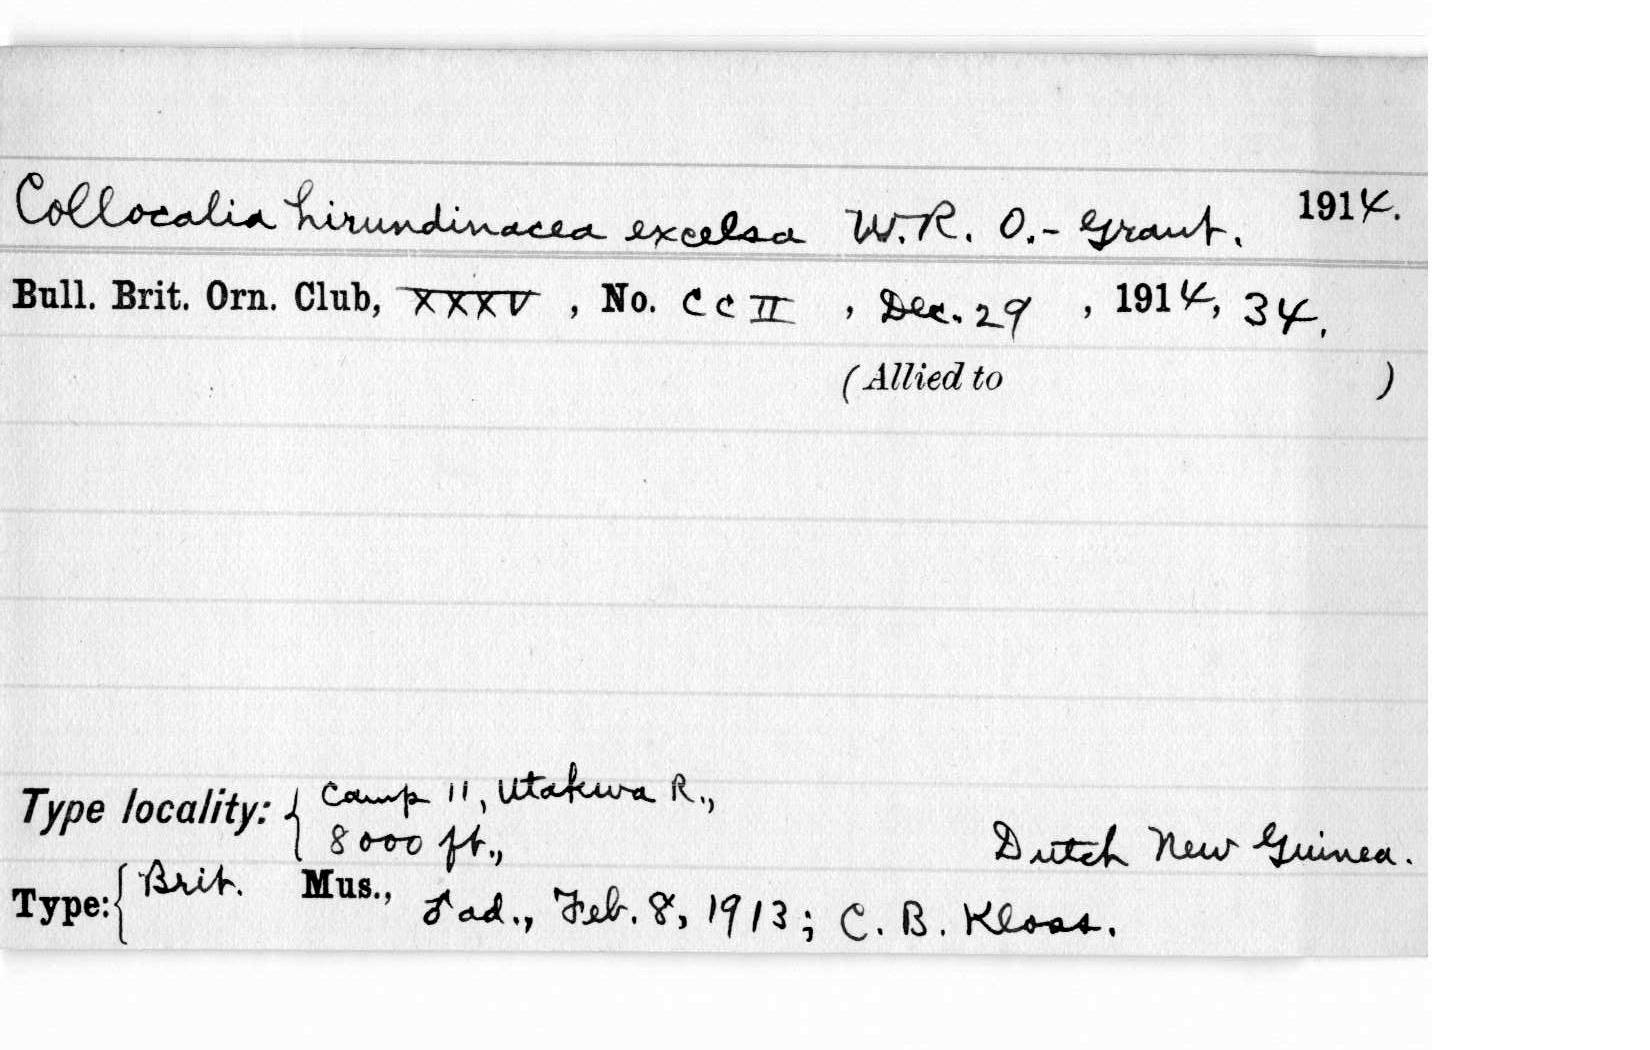 Collocalia hirundinacea excelsa W.R. O.- Grant. 1914.
Bull. Brit. Orn. Club, XXXV, No. CCII, Dec. 29, 1914, 34.
(Allied to )
Type locality: { Camp 11, Utakwa R.,
8000 ft., Dutch New Guinea.
Type: { Brit. Mus., ♂ ad., Feb. 8, 1913; C. B. Kloss.